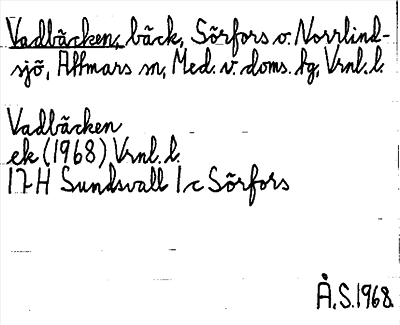 Vadbäcken, bäck, Sörfors o. Norrlind-
sjö, Attmars sn, Med. v. doms. tg, Vrnl. l.
Vadbäcken
ek (1968) Vrnl. l.
17H Sundsvall 1c Sörfors
Å.S. 1968